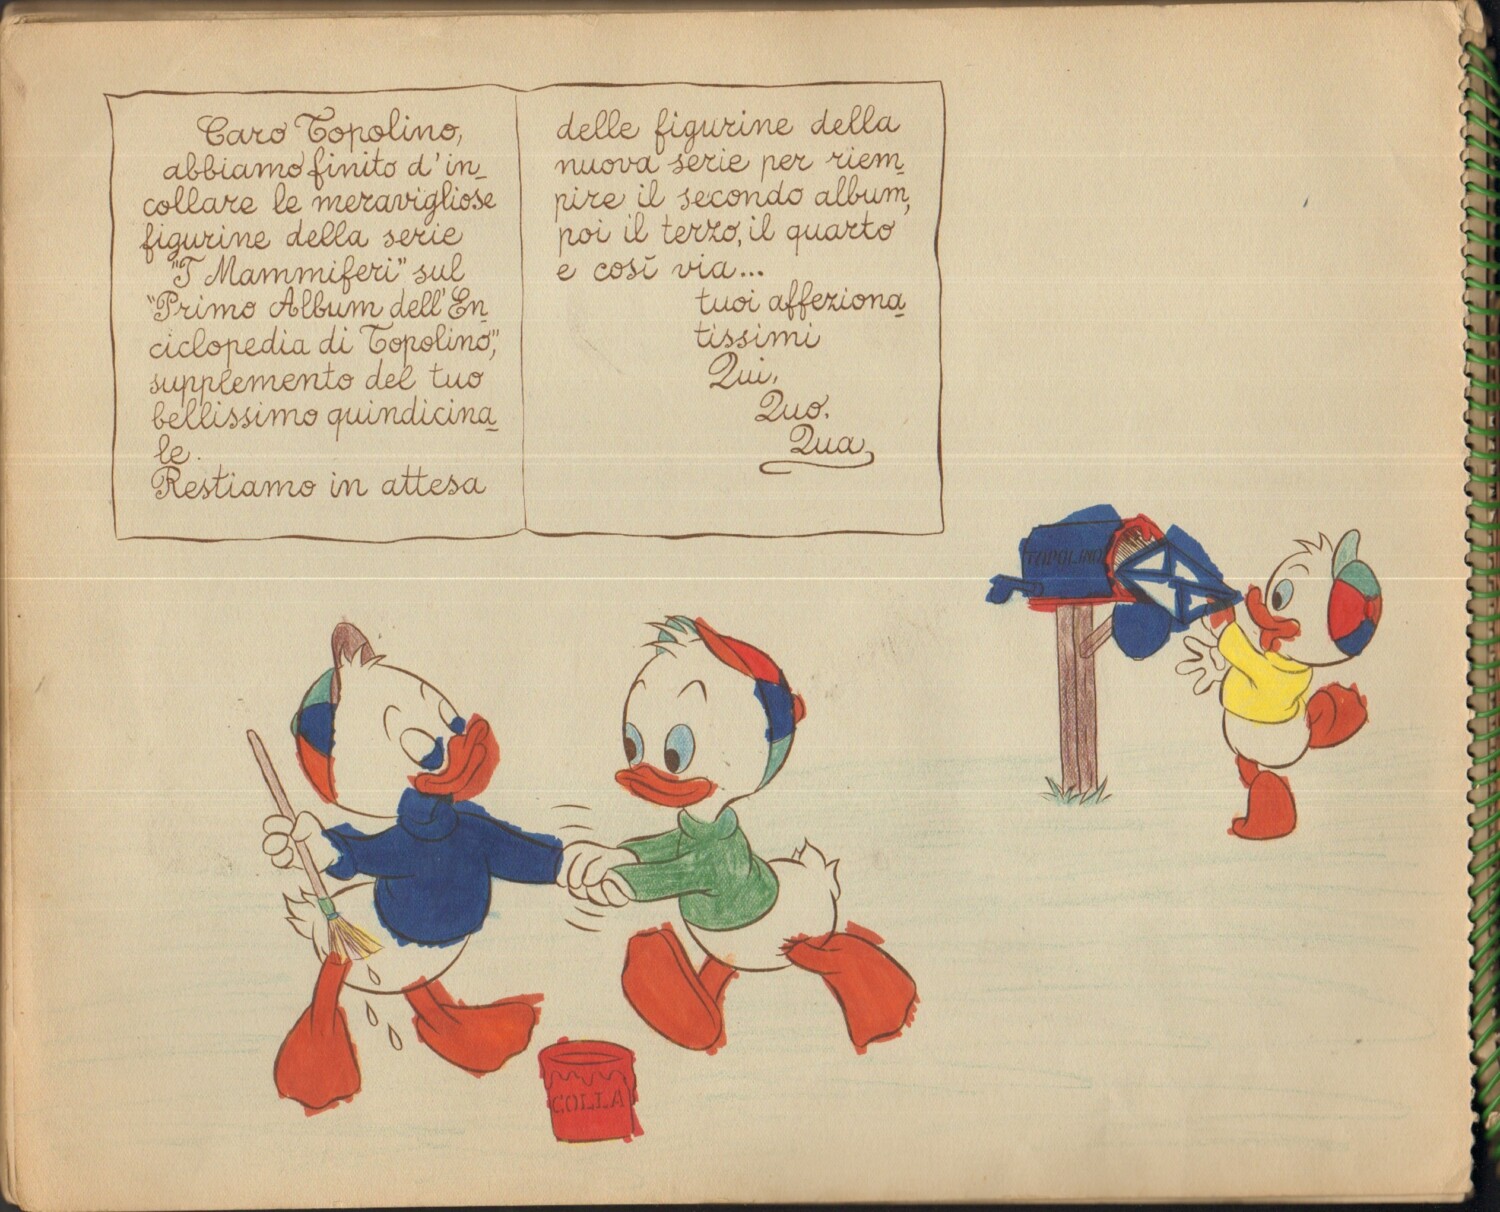 Caro Topolino,
abbiamo finito d'in-
collare le meravigliose
figurine della serie
"I Mammiferi" sul
"Primo Album dell'En-
ciclopedia di Topolino",
supplemento del tuo
bellissimo quindicina-
le.
Restiamo in attesa
delle figurine della
nuova serie per riem-
pire il secondo album,
poi il terzo, il quarto
e così via...
tuoi affeziona-
tissimi
Qui,
Quo,
Qua
TOPOLINO
COLLA